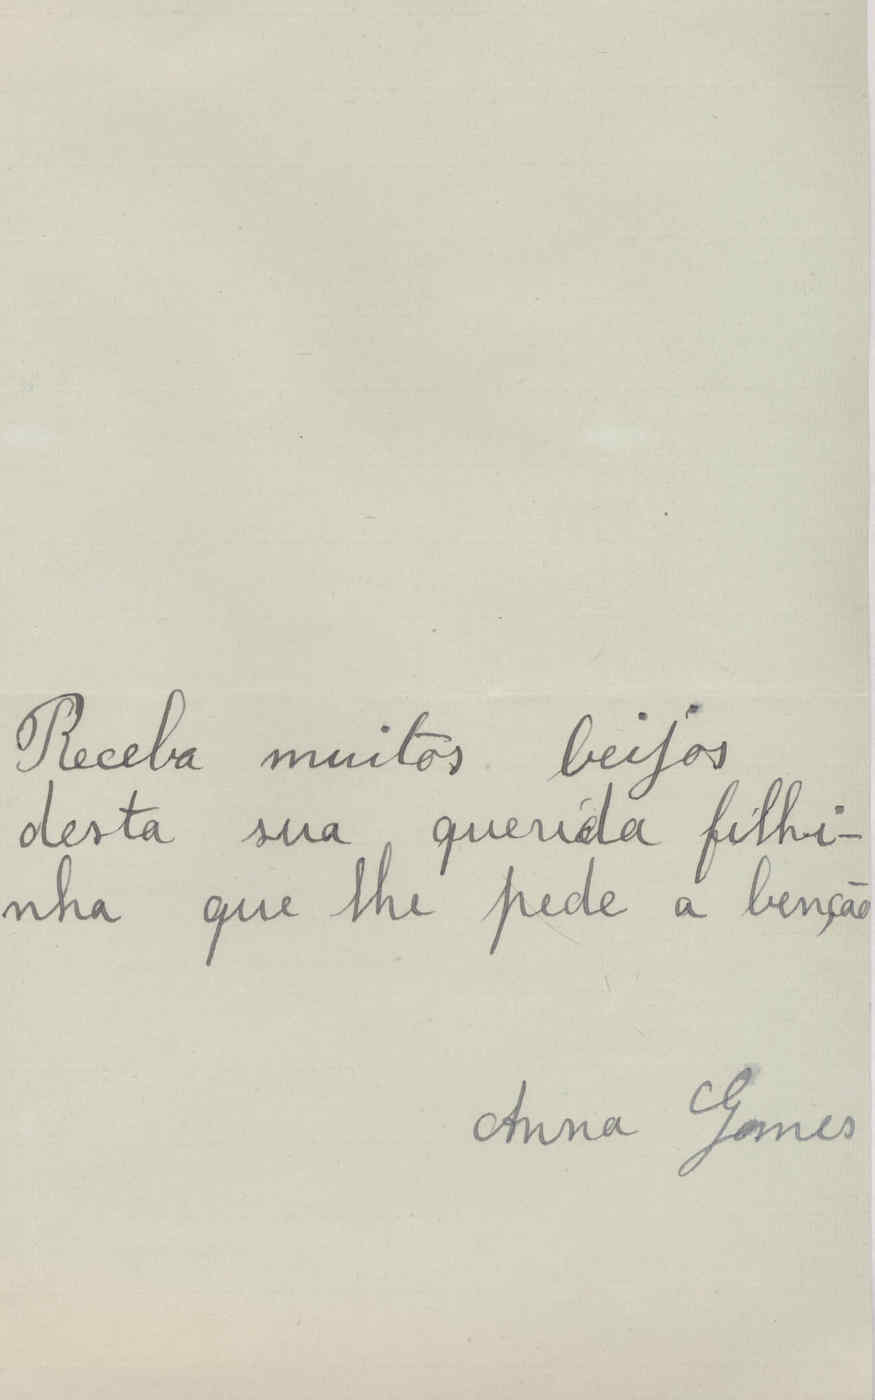 Receba muitos beijos
desta sua querida filhi-
nha que lhe pede a benção
Anna Gomes